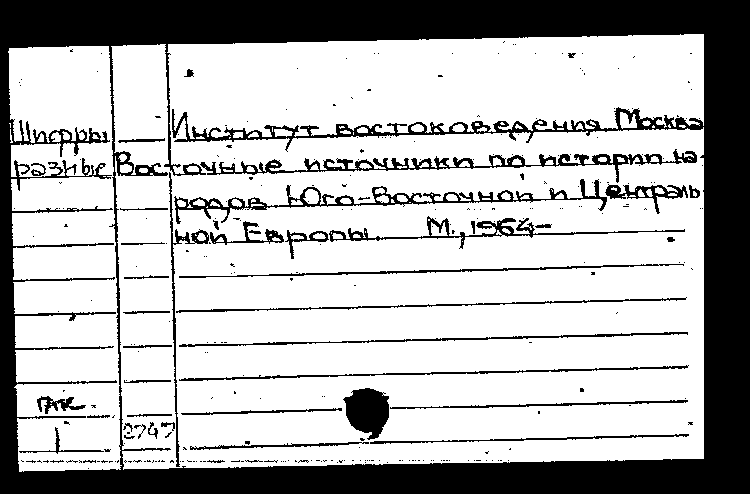 Шифры Институт востоковедения Москва
разные Восточные источники по истории на-
родов Юго-Восточной и Централь-
ной Европы. М., 1964-
ГАК.
1 2747